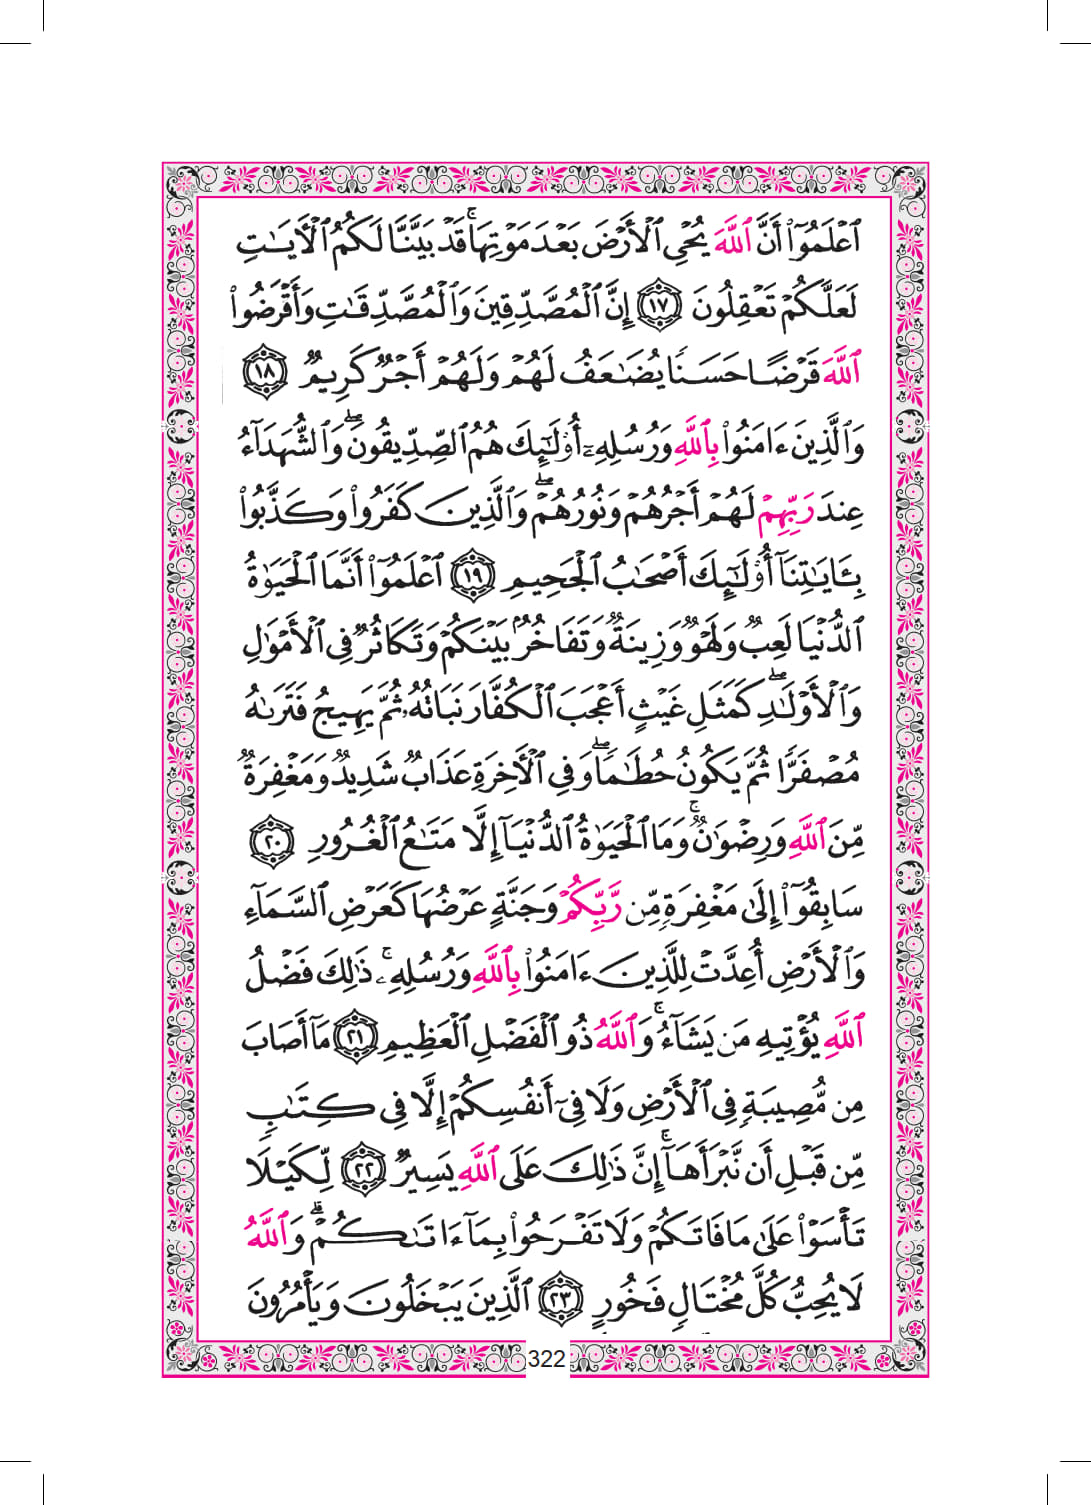 ٱعۡلَمُوٓاْ أَنَّ ٱللَّهَ يُحۡيِ ٱلۡأَرۡضَ بَعۡدَ مَوۡتِهَاۚ قَدۡ بَيَّنَّا لَكُمُ ٱلۡأٓيَٰتِ
لَعَلَّكُمۡ تَعۡقِلُونَ ١٧ إِنَّ ٱلۡمُصَّدِّقِينَ وَٱلۡمُصَّدِّقَٰتِ وَأَقۡرَضُواْ
ٱللَّهَ قَرۡضًا حَسَنٗا يُضَٰعَفُ لَهُمۡ وَلَهُمۡ أَجۡرٞ كَرِيمٞ ١٨
وَٱلَّذِينَ ءَامَنُواْ بِٱللَّهِ وَرُسُلِهِۦٓ أُوْلَٰٓئِكَ هُمُ ٱلصِّدِّيقُونَۖ وَٱلشُّهَدَآءُ
عِندَ رَبِّهِمۡ لَهُمۡ أَجۡرُهُمۡ وَنُورُهُمۡۖ وَٱلَّذِينَ كَفَرُواْ وَكَذَّبُواْ
بِـَٔايَٰتِنَآ أُوْلَٰٓئِكَ أَصۡحَٰبُ ٱلۡجَحِيمِ ١٩ ٱعۡلَمُوٓاْ أَنَّمَا ٱلۡحَيَوٰةُ
ٱلدُّنۡيَا لَعِبٞ وَلَهۡوٞ وَزِينَةٞ وَتَفَاخُرُۢ بَيۡنَكُمۡ وَتَكَاثُرٞ فِي ٱلۡأَمۡوَٰلِ
وَٱلۡأَوۡلَٰدِۖ كَمَثَلِ غَيۡثٍ أَعۡجَبَ ٱلۡكُفَّارَ نَبَاتُهُۥ ثُمَّ يَهِيجُ فَتَرَىٰهُ
مُصۡفَرّٗا ثُمَّ يَكُونُ حُطَٰمٗاۖ وَفِي ٱلۡأٓخِرَةِ عَذَابٞ شَدِيدٞ وَمَغۡفِرَةٞ
مِّنَ ٱللَّهِ وَرِضۡوَٰنٞۚ وَمَا ٱلۡحَيَوٰةُ ٱلدُّنۡيَآ إِلَّا مَتَٰعُ ٱلۡغُرُورِ ٢٠
سَابِقُوٓاْ إِلَىٰ مَغۡفِرَةٖ مِّن رَّبِّكُمۡ وَجَنَّةٍ عَرۡضُهَا كَعَرۡضِ ٱلسَّمَآءِ
وَٱلۡأَرۡضِ أُعِدَّتۡ لِلَّذِينَ ءَامَنُواْ بِٱللَّهِ وَرُسُلِهِۦۚ ذَٰلِكَ فَضۡلُ
ٱللَّهِ يُؤۡتِيهِ مَن يَشَآءُۚ وَٱللَّهُ ذُو ٱلۡفَضۡلِ ٱلۡعَظِيمِ ٢١ مَآ أَصَابَ
مِن مُّصِيبَةٖ فِي ٱلۡأَرۡضِ وَلَا فِيٓ أَنفُسِكُمۡ إِلَّا فِي كِتَٰبٖ
مِّن قَبۡلِ أَن نَّبۡرَأَهَآۚ إِنَّ ذَٰلِكَ عَلَى ٱللَّهِ يَسِيرٞ ٢٢ لِّكَيۡلَا
تَأۡسَوۡاْ عَلَىٰ مَا فَاتَكُمۡ وَلَا تَفۡرَحُواْ بِمَآ ءَاتَىٰكُمۡۗ وَٱللَّهُ
لَا يُحِبُّ كُلَّ مُخۡتَالٖ فَخُورٍ ٢٣ ٱلَّذِينَ يَبۡخَلُونَ وَيَأۡمُرُونَ
322